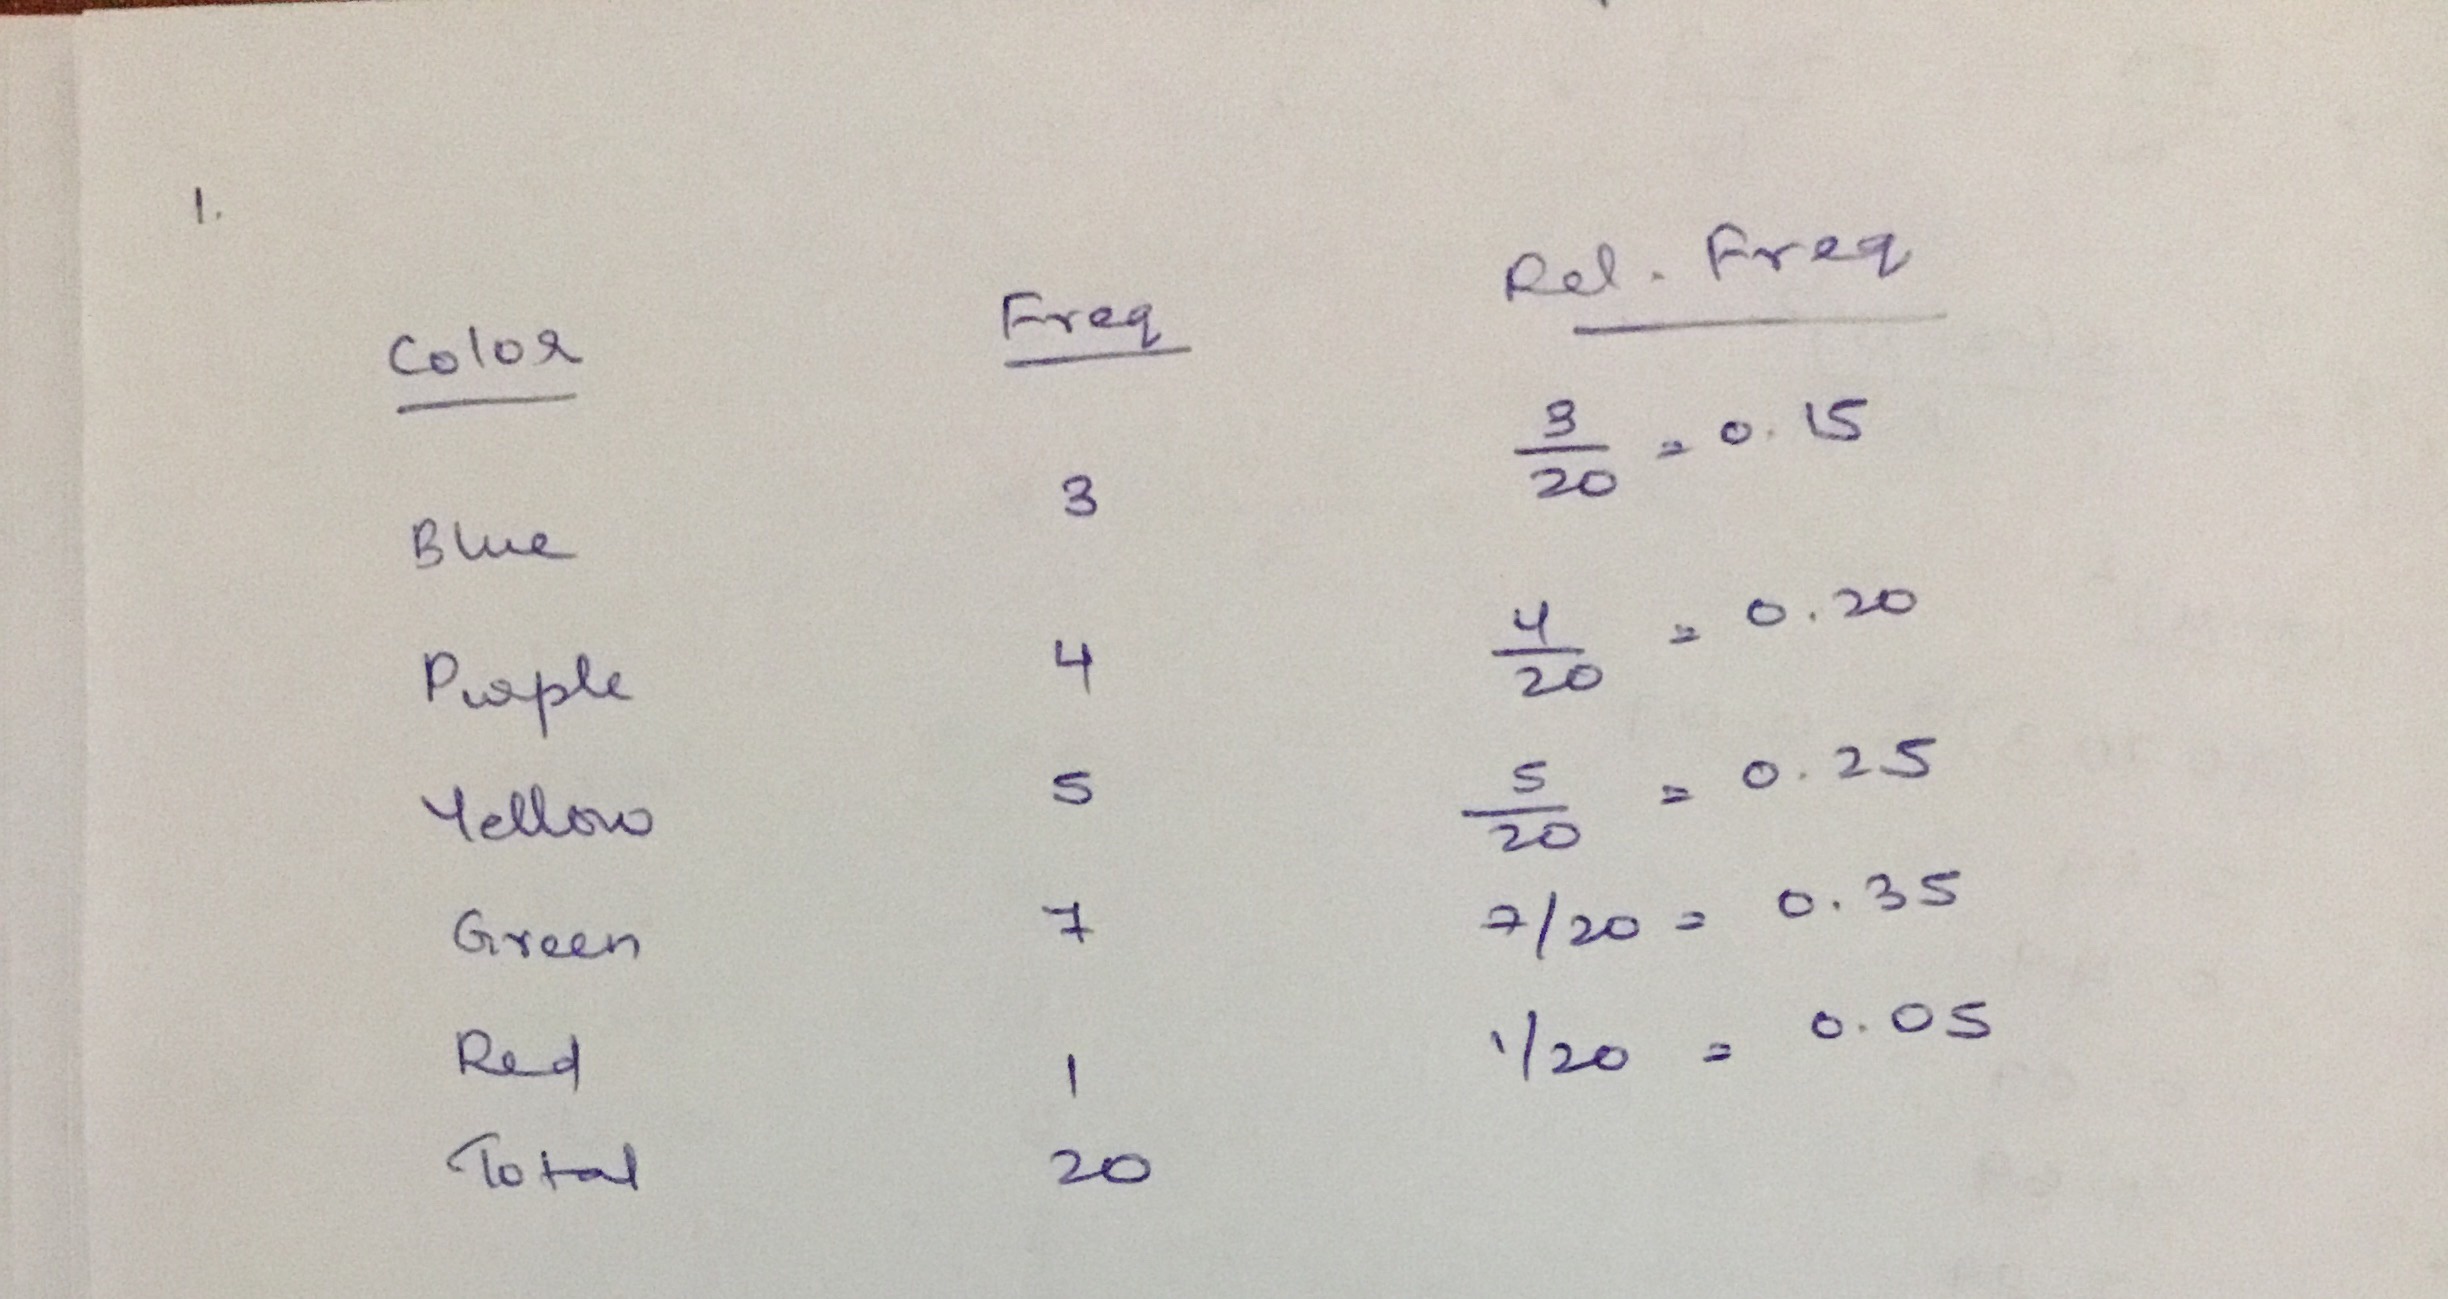 1.
Color Freq Rel. Freq
Blue 3 3/20 = 0.15
Purple 4 4/20 = 0.20
Yellow 5 5/20 = 0.25
Green 7 7/20 = 0.35
Red 1 1/20 = 0.05
Total 20